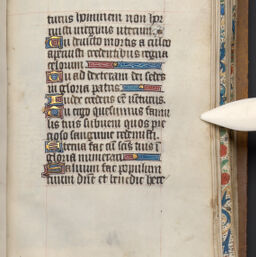 turus hominem non hor
ruisti virginis uterum.
Tu devicto mortis aculeo
aperuisti credentibus regna
celorum
Tu ad dexteram dei sedes
in gloria patris
Iudex crederis esse venturus.
Tu ergo quesumus famu
lis tuis subveni quos pre
cioso sanguine redemisti.
Eterna fac cum sanctis tuis in
gloria numerari
Salvum fac populum
tuum domine et benedic here